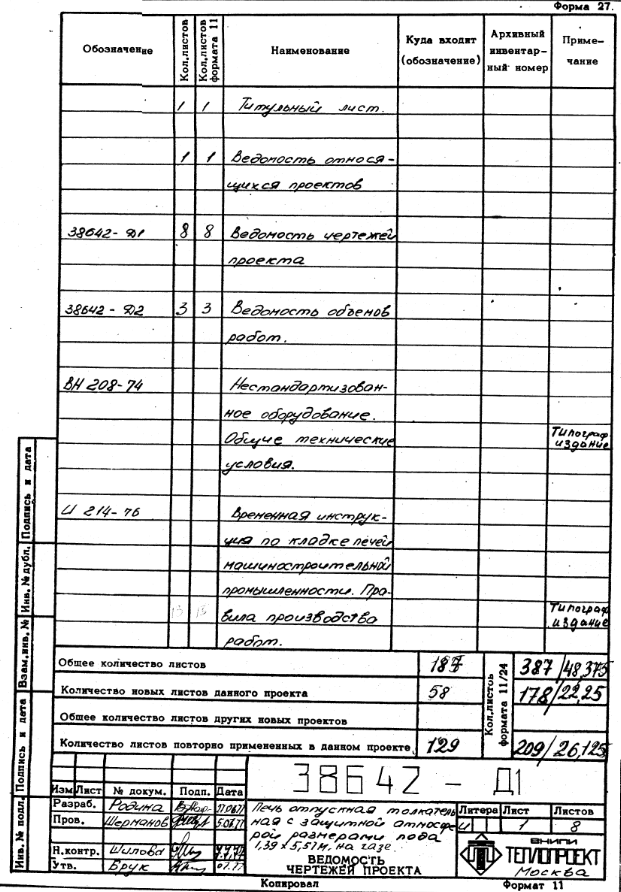 Форма 27.
Обозначение
Кол.листов
Кол.листов формата 11
Наименование
Куда входит (обозначение)
Архивный инвентарный номер
Примечание
1 1 Титульный лист.
1 1 Ведомость относя-
щихся проектов
38642-Д1 8 8 Ведомость чертежей
проекта
38642-Д2 3 3 Ведомость объемов
работ.
ВН 208-74 Нестандартизован-
ное оборудование.
Общие технические Типограф
условия. издание
И 214-76 Временная инструк-
ция по кладке печей
машиностроительной
промышленности. Пра-
13 13 вила производства Типограф
работ. издание
Общее количество листов 187 387/48,375
Количество новых листов данного проекта 58 178/22,25
Общее количество листов других новых проектов
Количество листов повторно примененных в данном проекте 129 209/26,125
Кол.листов формата 11/24
38642 - Д1
Изм Лист № докум. Подп. Дата
Разраб. Родина
Пров. Шерманов
Н.контр. Шилова
Утв. Брук
Печь отпускная толкатель
ная с защитной атмосфе
рой размерами пода
1,39 х 5,57 м, на газе.
ВЕДОМОСТЬ
ЧЕРТЕЖЕЙ ПРОЕКТА
Литера Лист Листов
И 1 8
ВНИПИ
ТЕПЛОПРОЕКТ
Москва
Копировал Формат 11
Инв. № подл.
Подпись и дата
Взам.инв. №
Инв. № дубл.
Подпись и дата